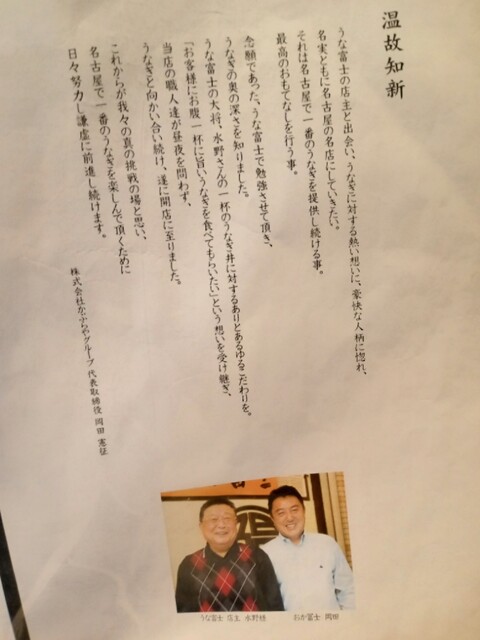 温故知新
うな富士の店主と出会い、うなぎに対する熱い想いに、豪快な人柄に惚れ、
名実ともに名古屋の名店にしていきたい。
それは名古屋で一番のうなぎを提供し続ける事。
最高のおもてなしを行う事。
念願であった、うな富士で勉強させて頂き、
うなぎの奥の深さを知りました。
うな富士の大将、水野さんの一杯のうなぎ丼に対するありとあるゆるこだわりを。
「お客様にお腹一杯に旨いうなぎを食べてもらいたい」という想いを受け継ぎ、
当店の職人達が昼夜を問わず、
うなぎと向かい合い続け、遂に開店に至りました。
これからが我々の真の挑戦の場と思い、
名古屋で一番のうなぎを楽しんで頂くために
日々努力し謙虚に前進し続けます。
株式会社かぶらやグループ 代表取締役 岡田 憲征
うな富士 店主 水野
おか富士 岡田